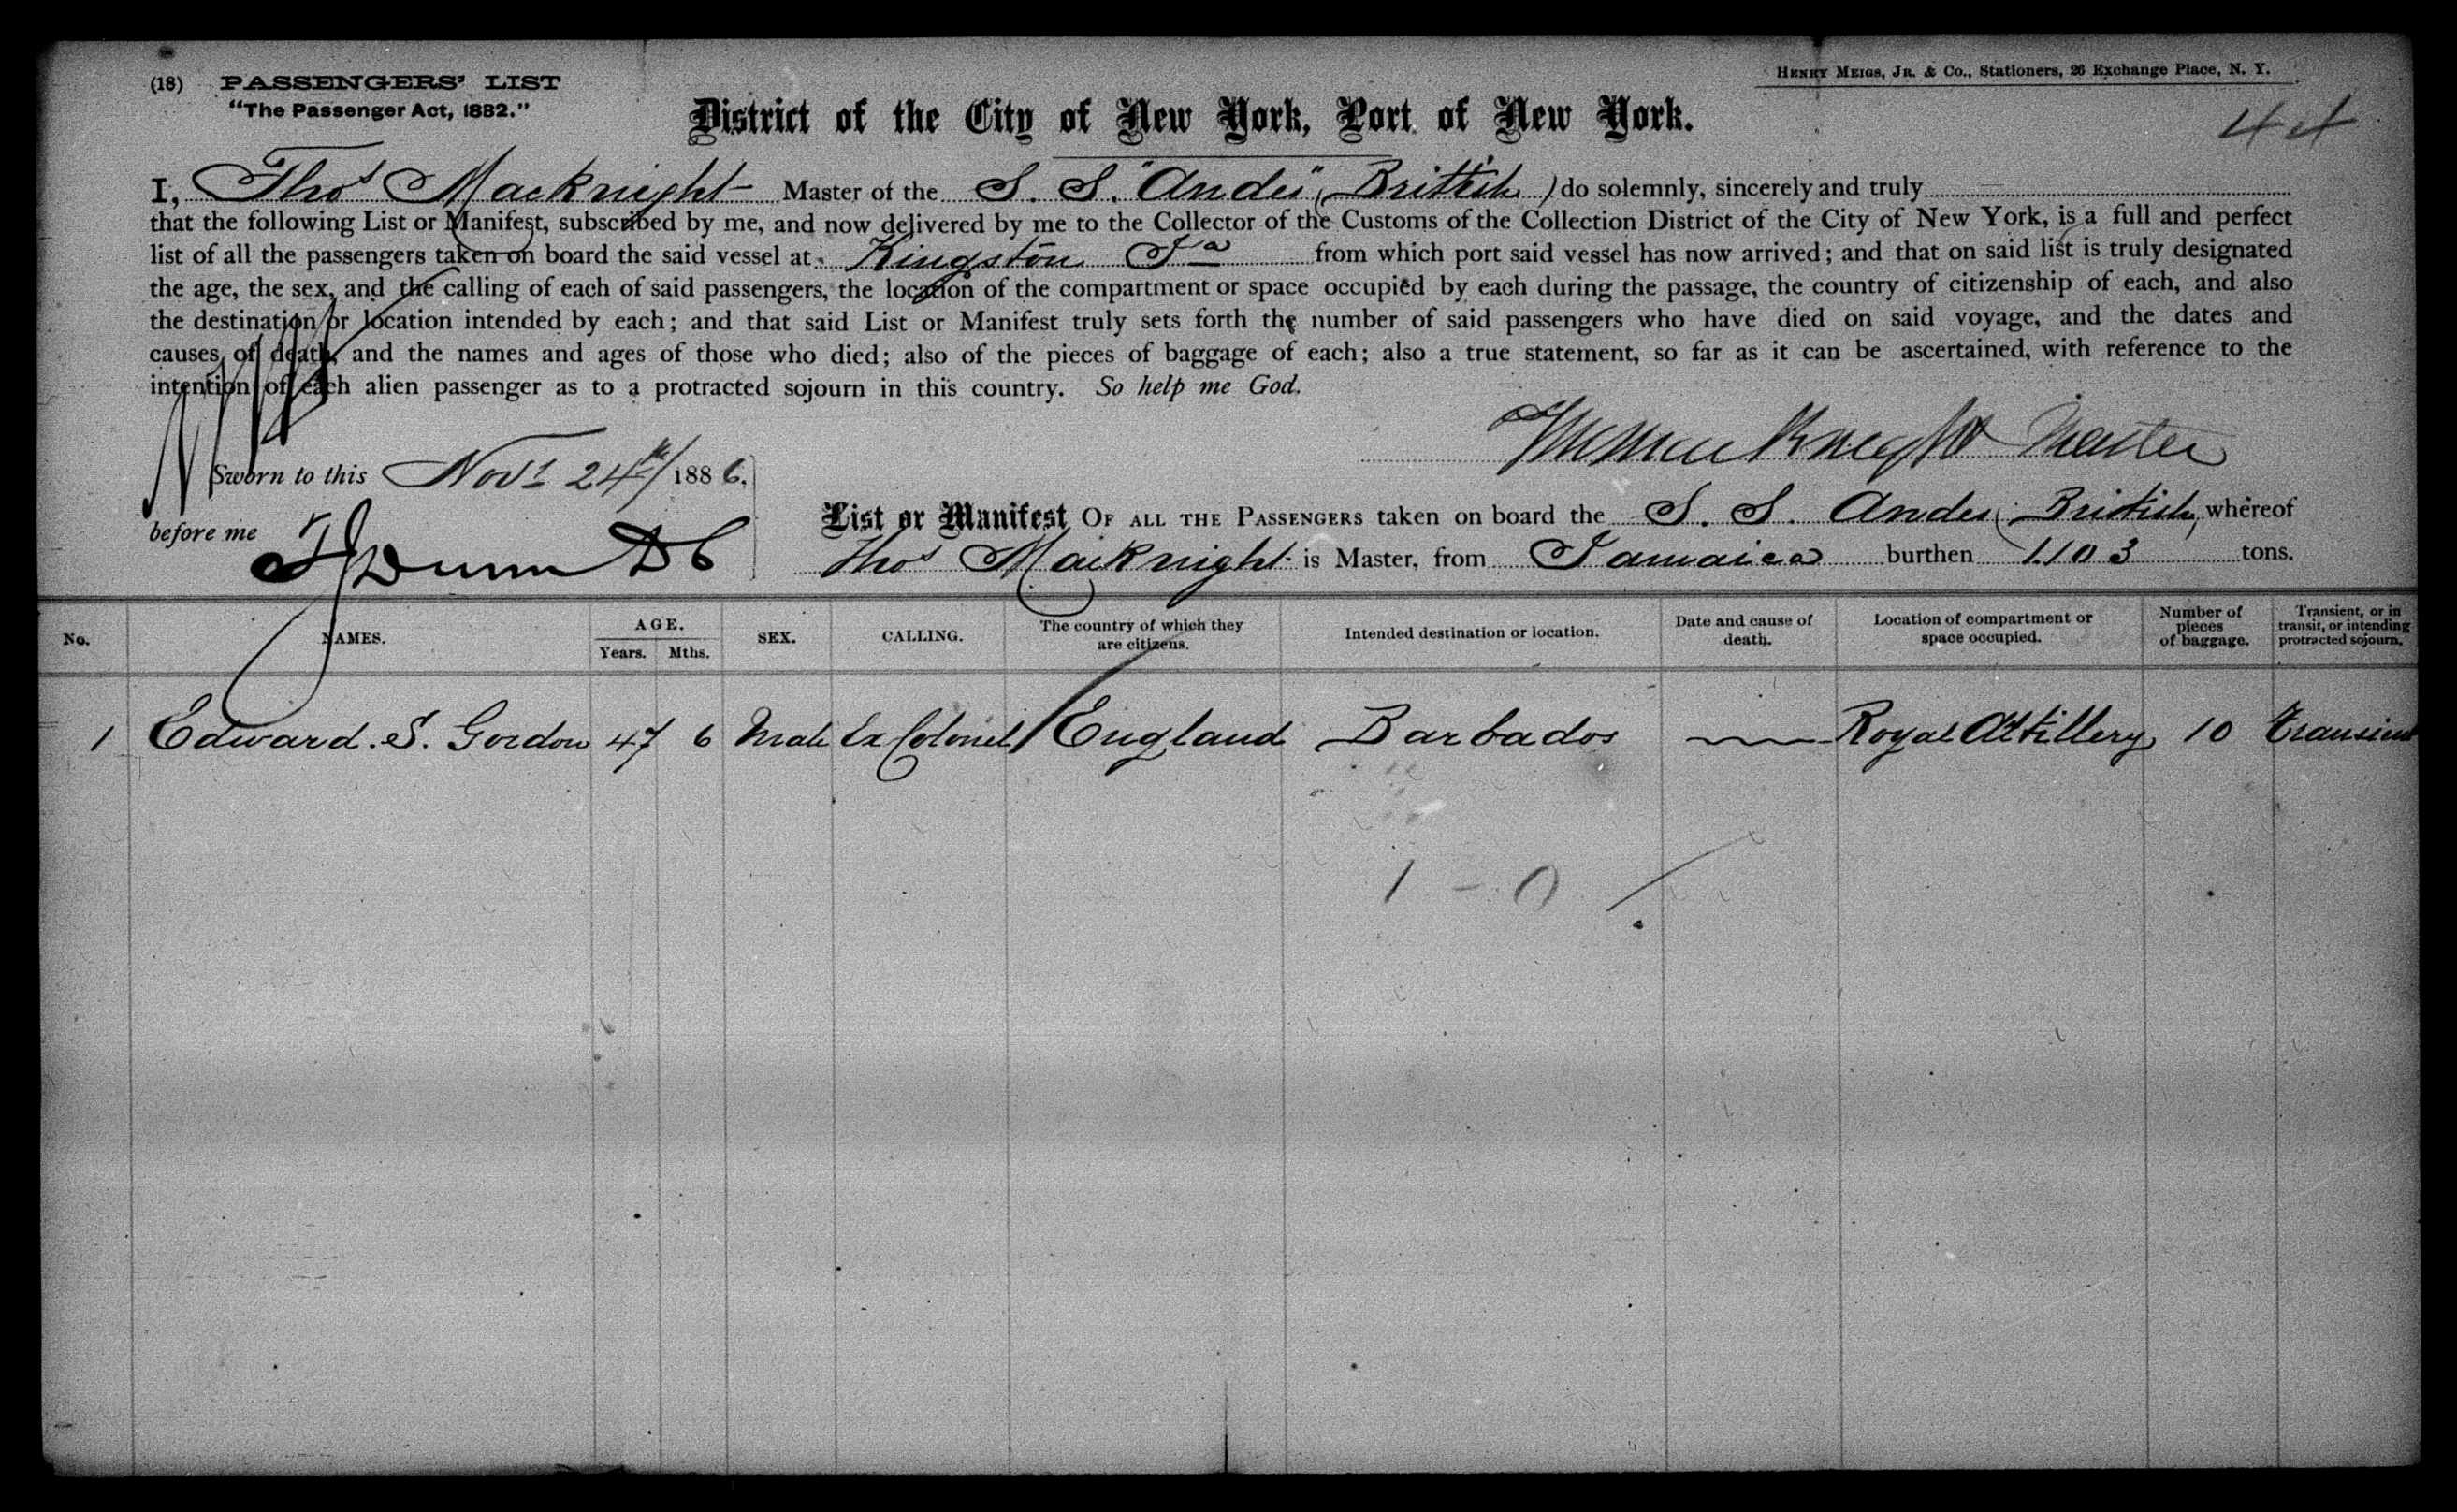 (18) PASSENGERS' LIST
"The Passenger Act, 1882."
HENRY MEIGS, JR. & CO., Stationers, 26 Exchange Place, N. Y.
44
District of the City of New York, Port of New York.
I, Thos Macknight Master of the S. S. "Andes" (British) do solemnly, sincerely and truly
that the following List or Manifest, subscribed by me, and now delivered by me to the Collector of the Customs of the Collection District of the City of New York, is a full and perfect
list of all the passengers taken on board the said vessel at Kingston Ja from which port said vessel has now arrived; and that on said list is truly designated
the age, the sex, and the calling of each of said passengers, the location of the compartment or space occupied by each during the passage, the country of citizenship of each, and also
the destination or location intended by each; and that said List or Manifest truly sets forth the number of said passengers who have died on said voyage, and the dates and
causes of death, and the names and ages of those who died; also of the pieces of baggage of each; also a true statement, so far as it can be ascertained, with reference to the
intention of each alien passenger as to a protracted sojourn in this country. So help me God.
Master
Sworn to this Novr 24th/1886.
before me
Dunn DC
List or Manifest OF ALL THE PASSENGERS taken on board the S. S. Andes (British) whereof
Thos Macknight is Master, from Jamaica burthen 1103 tons.
No. NAMES. AGE. Years. Mths. SEX. CALLING. The country of which they are citizens. Intended destination or location. Date and cause of death. Location of compartment or space occupied. Number of pieces of baggage. Transient, or in transit, or intending protracted sojourn.
1 Edward. S. Gordon 47 6 Male Ex Colonel England Barbados Royal Artillery 10 Transient
1 - 0